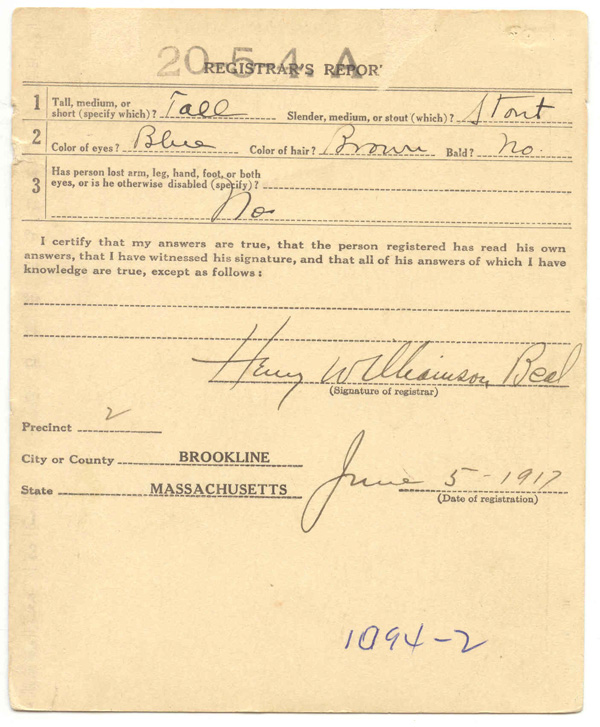 20-5-4-A
REGISTRAR'S REPOR
1 Tall, medium, or short (specify which)? Tall Slender, medium, or stout (which)? Stout
2 Color of eyes? Blue Color of hair? Brown Bald? No.
3 Has person lost arm, leg, hand, foot, or both
eyes, or is he otherwise disabled (specify)?
No
I certify that my answers are true, that the person registered has read his own
answers, that I have witnessed his signature, and that all of his answers of which I have
knowledge are true, except as follows:
Henry Williamson Beal
(Signature of registrar)
Precinct 2
City or County BROOKLINE
State MASSACHUSETTS
June 5-1917
(Date of registration)
1094-2